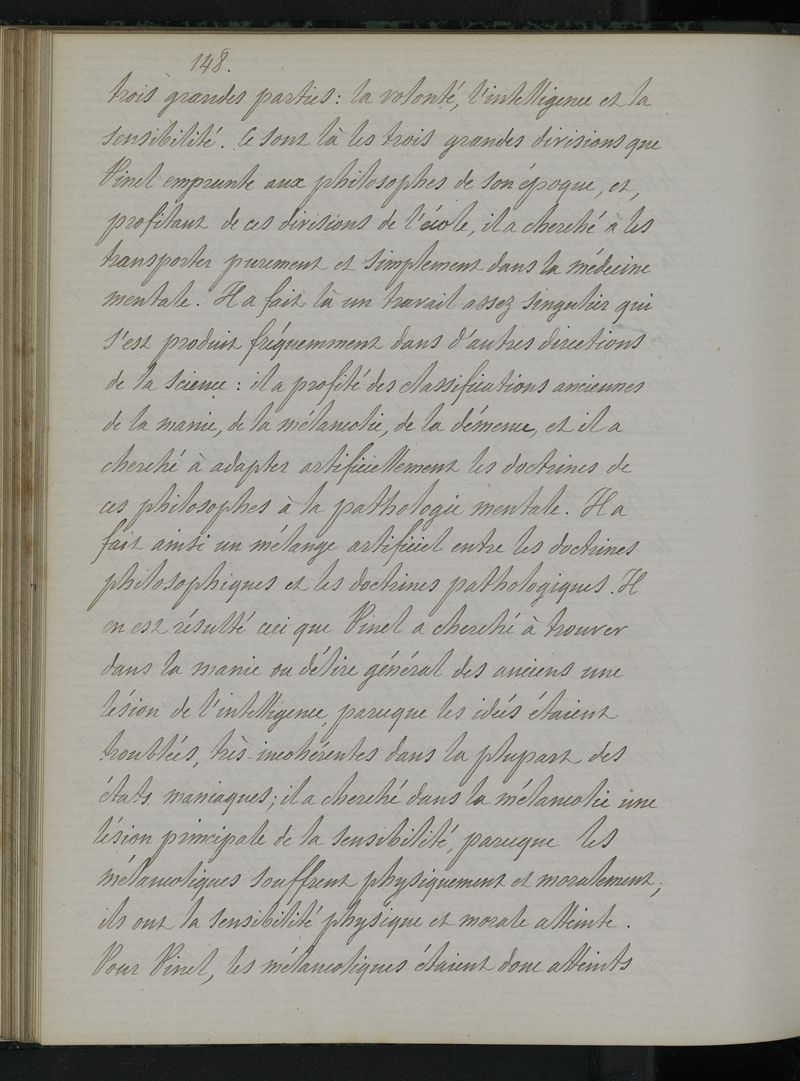 148.
trois grandes parties: la volonté, l'intelligence et la
sensibilité. Ce sont là les trois grandes divisions que
Pinel emprunte aux philosophes de son époque, et,
profitant de ces divisions de l'école, il a cherché à les
transporter purement et simplement dans la médecine
mentale. Il a fait là un travail assez singulier qui
s'est produit fréquemment dans d'autres directions
de la science: il a profité des classifications anciennes
de la manie, de la mélancolie, de la démence, et il a
cherché à adapter artificiellement les doctrines de
ces philosophes à la pathologie mentale. Il a
fait ainsi un mélange artificiel entre les doctrines
philosophiques et les doctrines pathologiques. Il
en est résulté ceci que Pinel a cherché à trouver
dans la manie ou délire général des anciens une
lésion de l'intelligence, parceque les idées étaient
troublées, très-incohérentes dans la plupart des
états maniaques; il a cherché dans la mélancolie une
lésion principale de la sensibilité, parceque les
mélancoliques souffrent physiquement et moralement;
ils ont la sensibilité physique et morale atteinte.
Pour Pinel, les mélancoliques étaient donc atteints